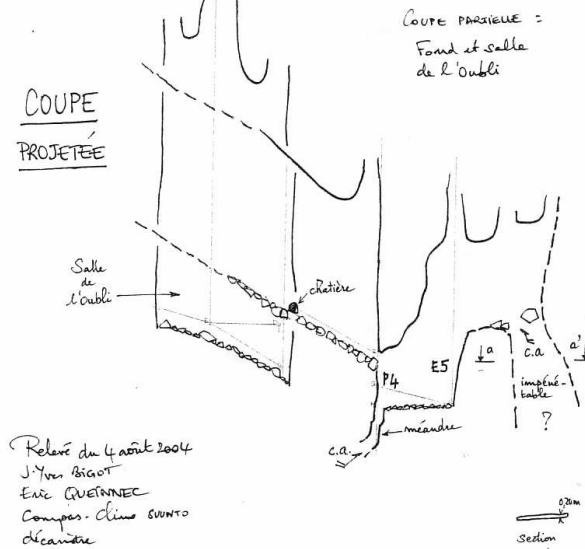 COUPE PARTIELLE =
Fond et salle
de l'Oubli
COUPE
PROJETÉE
Salle
de
l'Oubli
chatière
P4
E5
a
a'
c.a
impéné-
table
?
méandre
c.a.
Relevé du 4 août 2004
J.Yves BIGOT
Eric QUEINNEC
Compas-Clino SUUNTO
décamètre
0,20m
section